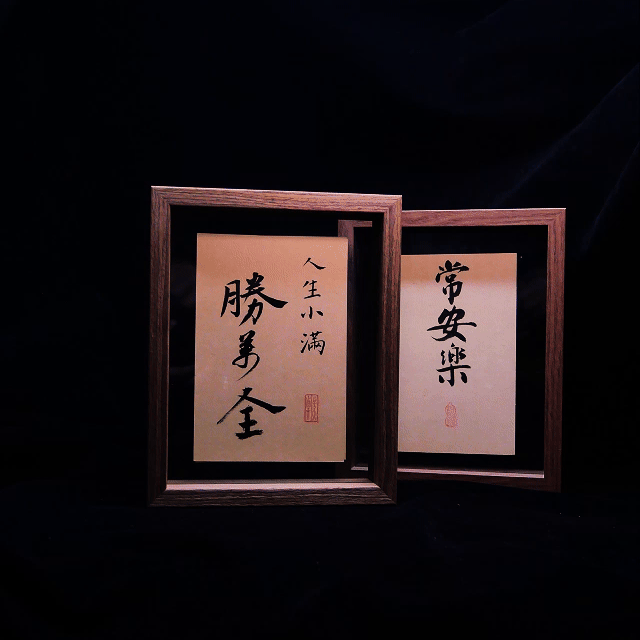 人生小滿
勝萬全
常安樂